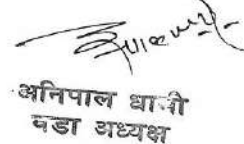 अनिपाल धामी
वडा अध्यक्ष